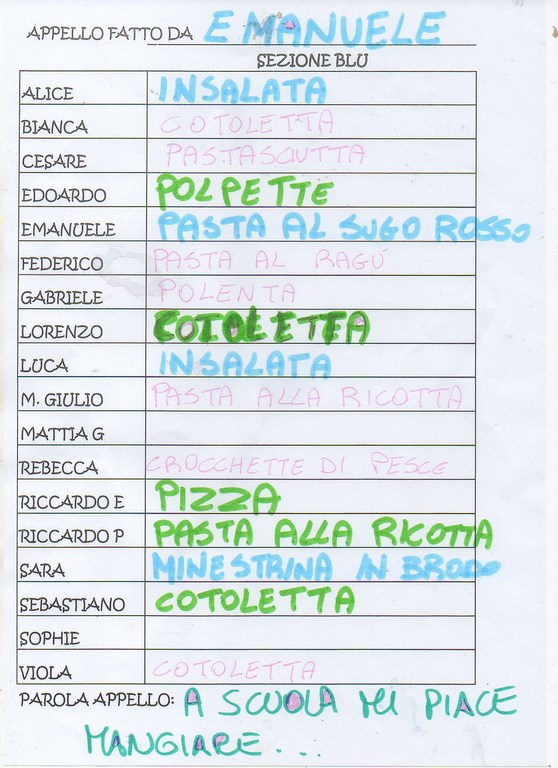 APPELLO FATTO DA EMANUELE
SEZIONE BLU
ALICE INSALATA
BIANCA COTOLETTA
CESARE PASTASCIUTTA
EDOARDO POLPETTE
EMANUELE PASTA AL SUGO ROSSO
FEDERICO PASTA AL RAGÚ
GABRIELE POLENTA
LORENZO COTOLETTA
LUCA INSALATA
M. GIULIO PASTA ALLA RICOTTA
MATTIA G
REBECCA CROCCHETTE DI PESCE
RICCARDO E PIZZA
RICCARDO P PASTA ALLA RICOTTA
SARA MINESTRINA IN BRODO
SEBASTIANO COTOLETTA
SOPHIE
VIOLA COTOLETTA
PAROLA APPELLO: A SCUOLA MI PIACE
MANGIARE...